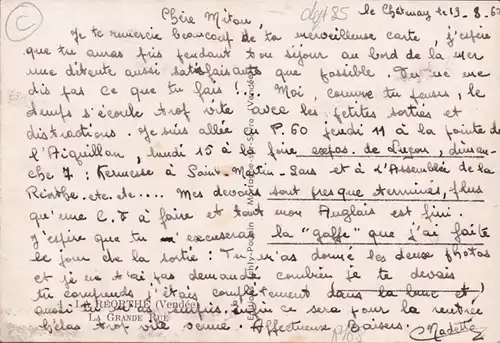 Chère Mitou, le Châtenay le 19-8-60
Je te remercie beaucoup de ta merveilleuse carte, j'espère
que tu auras pris pendant ton séjour au bord de la mer
une détente aussi satisfaisante que possible. Tu ne me
dis pas ce que tu fais !.. Moi, comme tu penses, le
temps s'écoule trop vite avec les petites sorties et
distractions. Je suis allée en P.60 jeudi 11 à la pointe de
l'Aiguillon, lundi 15 à la foire expos. de Luçon, diman-
che 7 : Kermesse à Saint-Martin-Lars et à l'Assemblée de la
Réorthe. etc. etc.... Mes devoirs sont presque terminés, plus
qu'une C.T à faire et tout mon Anglais est fini.
J'espère que tu m'excuseras la "gaffe" que j'ai faite
le jour de la sortie : Tu m'as donné les deux photos
et je ne t'ai pas demandé combien je te devais
tu comprends j'étais complètement dans la lune et
aussi tu m'as surpris. enfin ce sera pour la rentrée
hélas trop vite venue. Affectueux Baisers. Nadette
LA RÉORTHE (Vendée)
LA GRANDE RUE
C